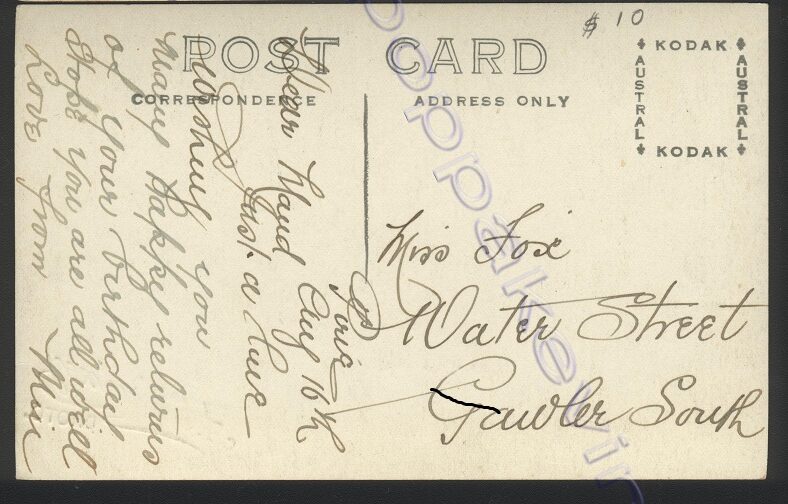 $10
POST CARD
CORRESPONDENCE
ADDRESS ONLY
KODAK
AUSTRAL
AUSTRAL
KODAK
Aug 16th
Dear Maud
Just a line
Wishing you
Many Happy returns
of your birthday
Hope you are all well
Love from
Miss Fox
Water Street
Gawler South